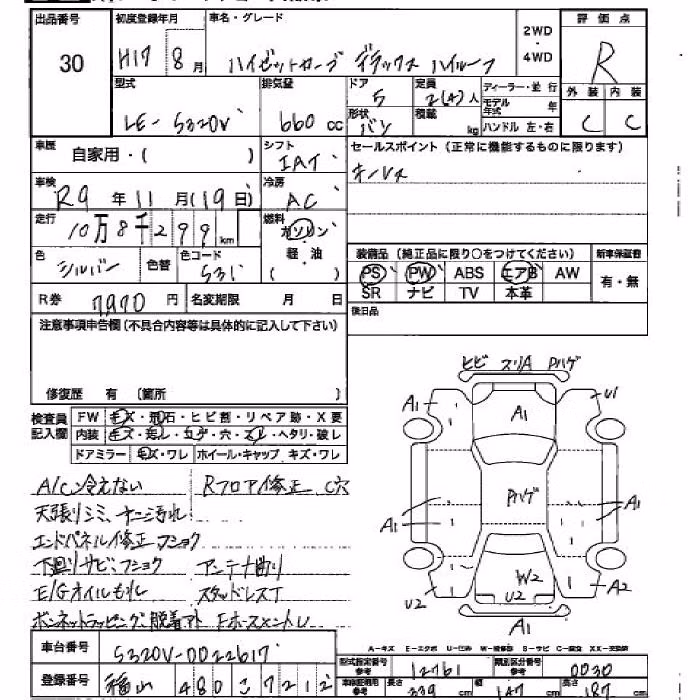 出品番号 初度登録年月 車名・グレード 2WD・4WD 評価点
30 H17 8月 ハイゼットカーゴ デラックス ハイルーフ R
型式 排気量 ドア 定員 ディーラー・並行 外装 内装
LE-S320V 660cc 5 2(4)人 モデル年式 年 C C
形状 バン 積載 kg ハンドル 左・右
車歴 自家用・( ) シフト IAT セールスポイント(正常に機能するものに限ります)
車検 R9年11月(19日) 冷房 AC
走行 10万8千299km 燃料 ガソリン・軽油( )
色 シルバー 色替 色コード S31 装備品(純正品に限り○をつけてください) 新車保証書
PS PW ABS エアB AW 有・無
R券 7970円 名変期限 月 日 SR ナビ TV 本革
後日品
注意事項申告欄(不具合内容等は具体的に記入して下さい)
修復歴 有 〔箇所 〕
ヒビ スリA Pハゲ
検査員記入欄 FW キズ・飛石・ヒビ割・リペア跡・X要
内装 キズ・汚レ・コゲ・穴・スレ・ヘタリ・破レ
ドアミラー キズ・ワレ ホイール・キャップ キズ・ワレ
A1 A1 U1
A/C冷えない Rフロア修正 C穴 Pハゲ
天張りシミ、ヤニ汚れ A1 A1
エンドパネル修正フショク
下廻りサビ、フショク アンテナ曲り
E/Gオイルもれ スタッドレスT W2 U2 U2 A2
A1
A-キズ E-エクボ U-凹み W-補修跡 S-サビ C-腐食 XX-交換済
車台番号 S320V-0022617 型式指定番号 参考 12761 類別区分番号 参考 0030
登録番号 福山 480 こ 7212 車体証明用 参考 長さ 339cm 幅 147cm 高さ 187cm